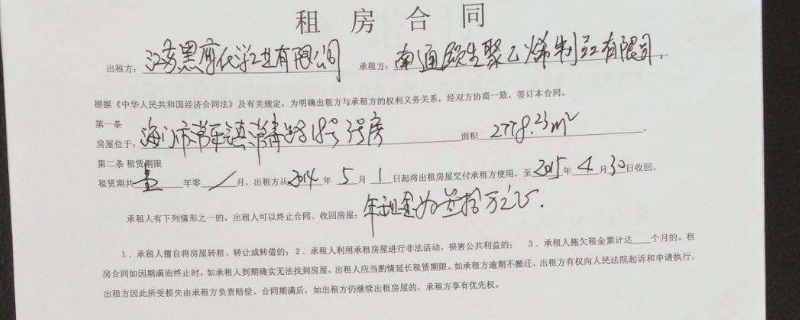 租房合同
出租方：江苏黑摩化学工业有限公司 承租方：南通欧生聚乙烯制品有限公司.
根据《中华人民共和国经济合同法》及有关规定，为明确出租方与承租方的权利义务关系，经双方协商一致，签订本合同。
第一条
房屋位于：海门市常乐镇常青路18号3号房 面积 2778.23m²
第二条 租赁期限
租赁期共壹年零/月，出租方从2014年5月1日起将出租房屋交付承租方使用，至2015年4月30日收回。
承租人有下列情形之一的，出租人可以终止合同、收回房屋：年租金为叁拾万元.
1、承租人擅自将房屋转租、转让或转借的；2、承租人利用承租房屋进行非法活动，损害公共利益的； 3、承租人拖欠租金累计达____个月的。租
房合同如因期满而终止时，如承租人到期确实无法找到房屋，出租人应当酌情延长租赁期限。如承租方逾期不搬迁，出租方有权向人民法院起诉和申请执行，
出租方因此所受损失由承租方负责赔偿。合同期满后，如出租方仍继续出租房屋的，承租方享有优先权。